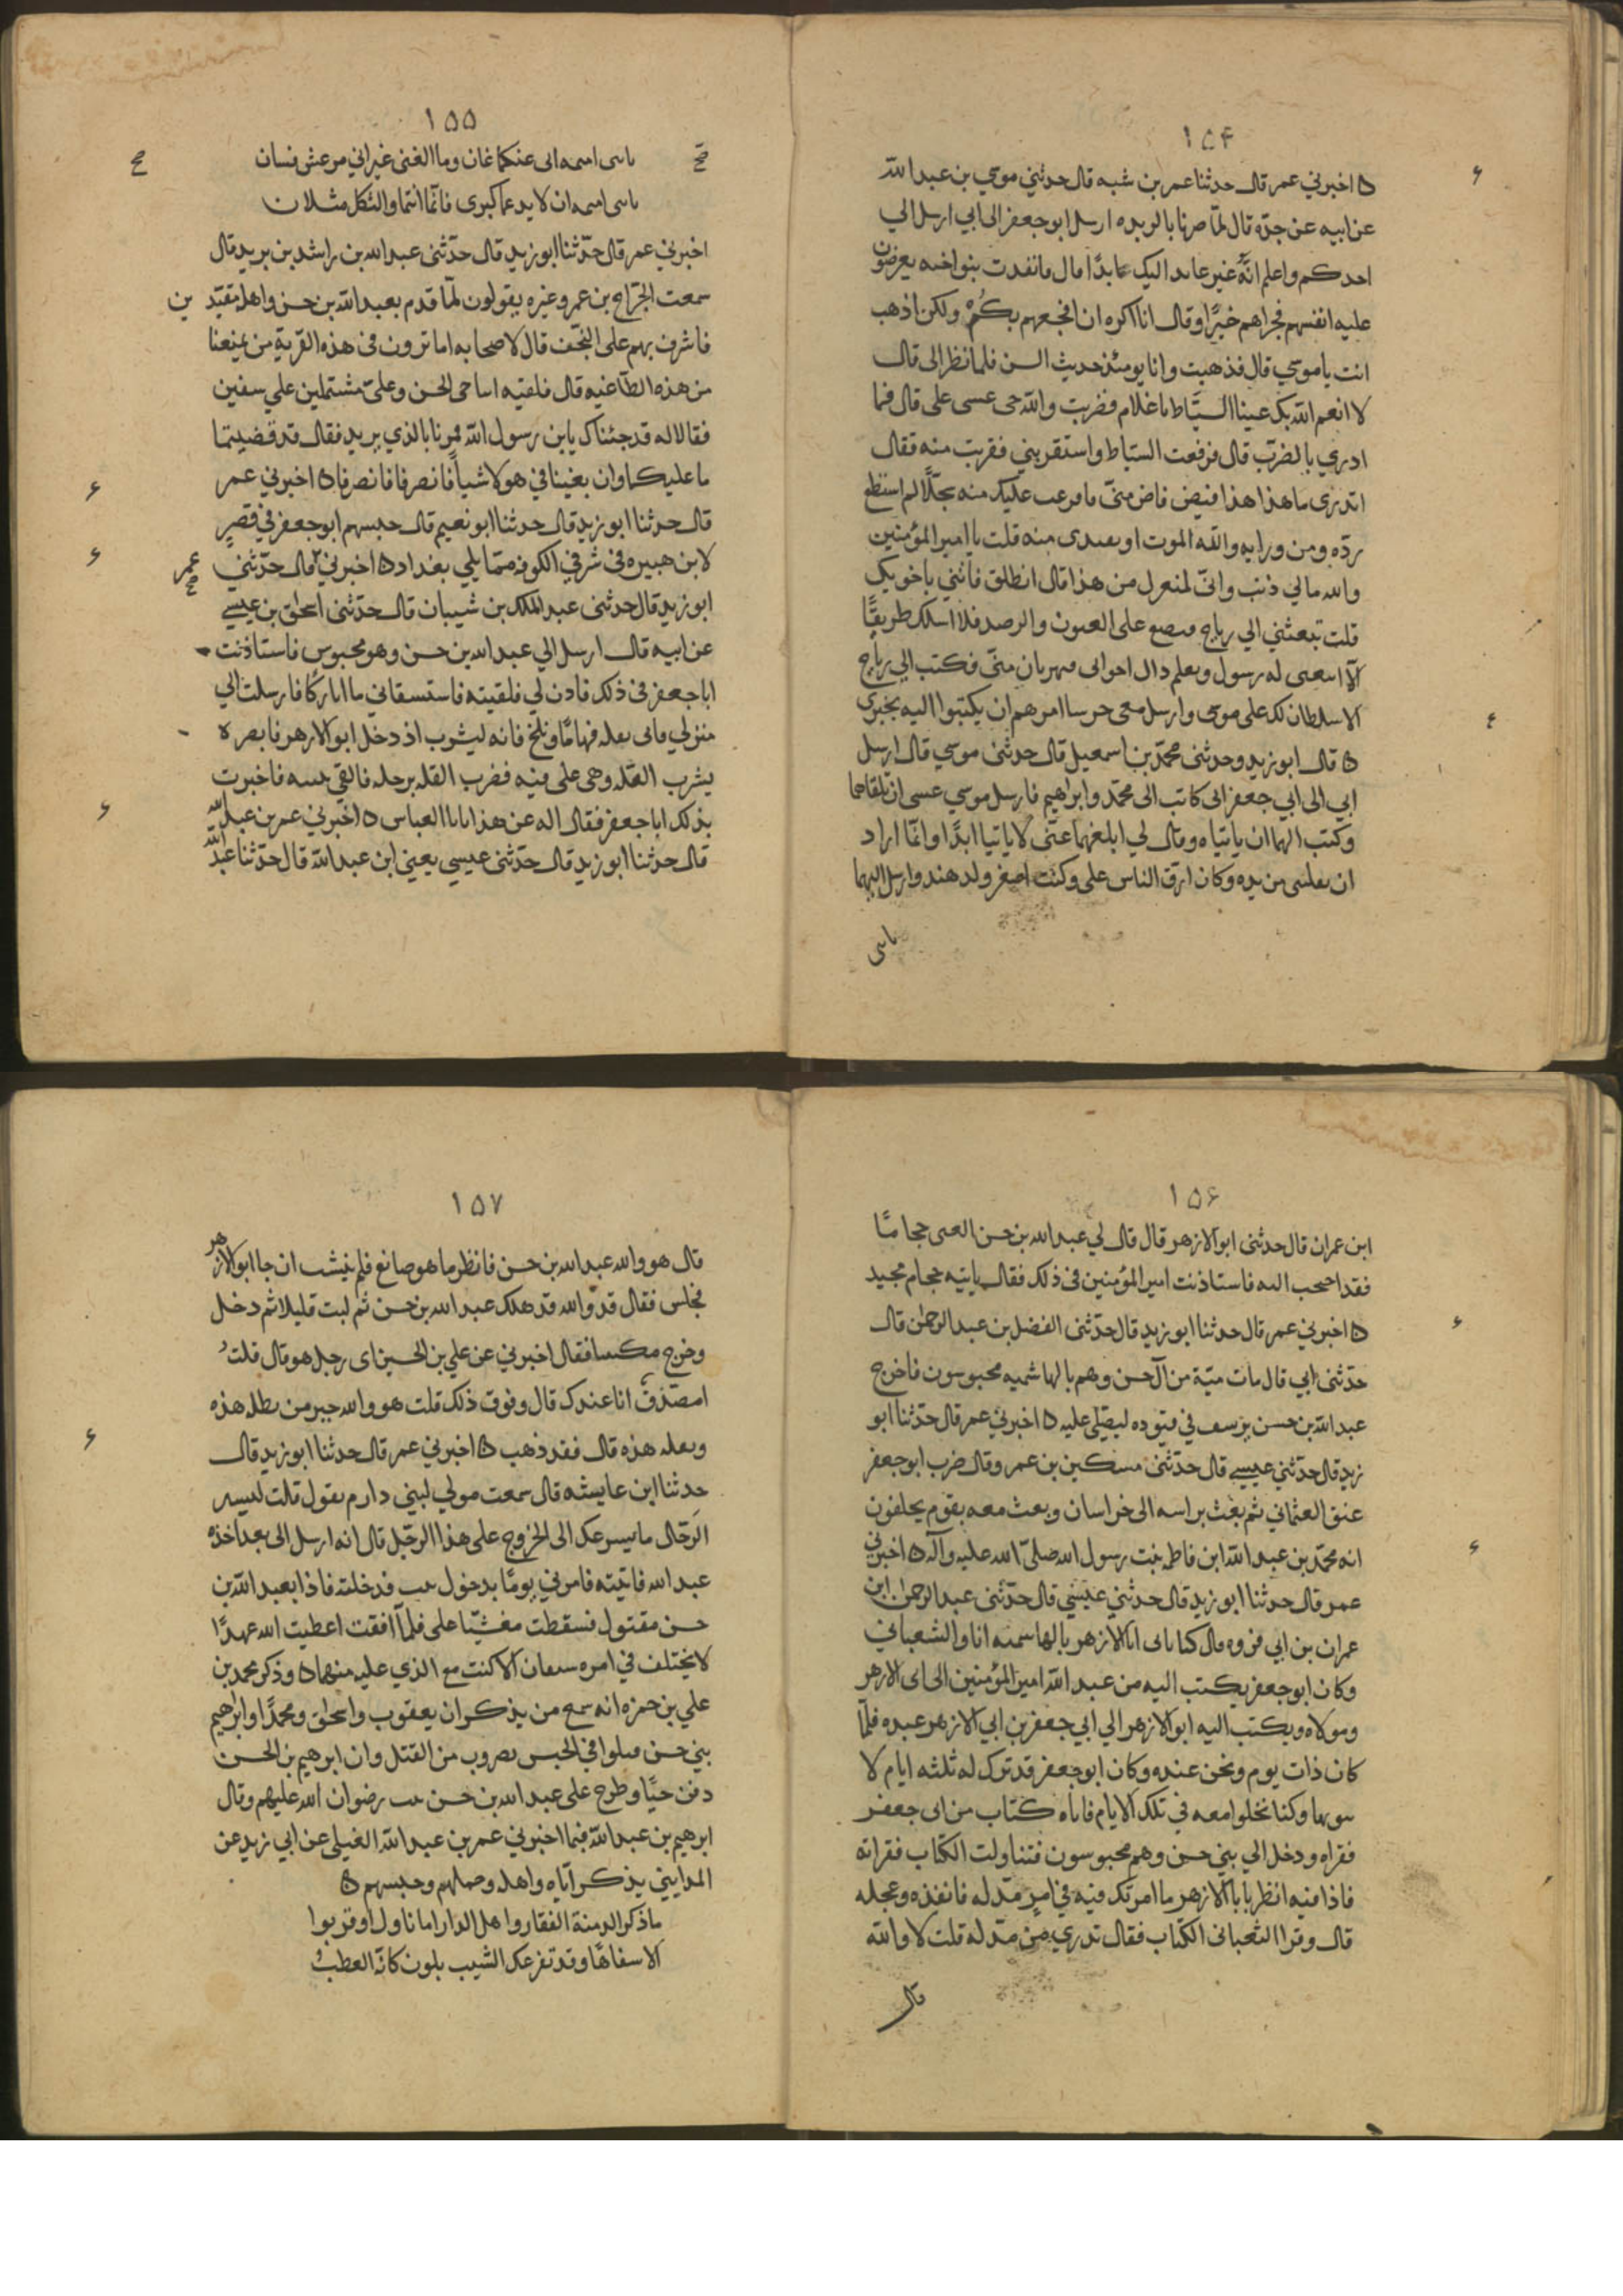 ١٥۴
ه اخبرني عمر قال حدثنا عمر بن شبه قال حدثني موسي بن عبد الله
عن ابيه عن جده قال لمّا صرنا بالربده ارسل ابو جعفر الى ابي ارسل الي
احدكم واعلم انّه غير عايد اليك ابدًا قال فابتدره بنو اخيه يعرضون
عليه انفسهم فجزاهم خيرًا وقال انا اكره ان افجعهم بكم ولكن اذهب
انت يا موسي قال فذهبت وانا يومئذ حديث السن فلما نظر الى قال
لا انعم الله بك عينا السيّاط يا غلام فضربت والله حى غسى على قال فما
ادري بالضرب قال فرفعت السياط واستقربني فقربت منه فقال
اتدرى ما هذا هذا فيض فاض منّى فافرغت عليك منه سجلًا لم استطع
ردّه ومن ورايه والله الموت او تفتدى منه قلت يا امير المؤمنين
والله مالي ذنب وانّى لمنعزل من هذا قال انطلق فاتني باخويك
قلت تبعثني الي رياح فيضع على العيون والرصد فلا اسلك طريقًا
الّا اتبعنى له رسول ويعلم ذلك اخواى فيهربان منّى فكتب الي رياح
لا سلطان لك على موسى وارسل معى حرسا امرهم ان يكتبوا اليه بخبري
ه قال ابو زيد وحدثنى محمّد بن اسمعيل قال حدثنى موسي قال ارسل
ابي الى ابي جعفر انى كاتب الى محمّد وابراهيم فارسل موسي عسى ان يلقاهما
وكتب الهما ان ياتياه وقال لي ابلغهما عنى لا ياتيا ابدًا وانّما اراد
ان يفلتنى من يده وكان ارق الناس على وكنت اصغر ولد هند وارسل اليهما
يابنى
١٥٥
يابنى اميه انى عنكما غان وما الغنى غير انى مرعش فسان
يابنى اميه ان لا يدعما كبرى فانّما انتما والثكل مثلان
اخبرني عمر قال حدّثنا ابو زيد قال حدّثنى عبد الله بن راشد بن يزيد قال
سمعت الجرّاح بن عمر وغيره يقولون لمّا قدم بعبد الله بن حسن واهله مقيّد ين
فاشرف بهم على النجف قال لاصحابه اما ترون في هذه القرية من يمنعنا
من هذه الطاغيه قال فلقيه ابنا حى الحسن وعلي مشتملين علي سيفين
فقالا له قد جئناك يا بن رسول الله فمرنا بالذي يريد فقال قد قضيتما
ما عليكما وان يغينا في هولا شيأ فانصرفا فانصرفا ه اخبرني عمر
قال حدثنا ابو زيد قال حدثنا ابو نعيم قال حبسهم ابو جعفر في قصر
لابن هبيره في شرقي الكوفه ممّا يلي بغداد ه اخبرني عمر قال حدّثني
ابو زيد قال حدثنى عبد الملك بن شيبان قال حدّثنى اسحاق بن عيسي
عن ابيه قال ارسل الي عبد الله بن حسن وهو محبوس فاستاذنت
ابا جعفر في ذلك فاذن لي فلقيته فاستسقاني ماا باردًا فارسلت الي
منزلي فاتى بقله فيها ماء وثلج فانه ليشرب اذ دخل ابو الازهر فابصره
يشرب القله وهى على فيه فضرب القله برجله فالقي ثنيته فاخبرت
بذلك ابا جعفر فقال اله عن هذا يابا العباس ه اخبرني عمر بن عبد الله
قال حدثنا ابو زيد قال حدّثنى عيسي يعني ابن عبد الله قال حدّثنا عبد الله
١٥۶
ابن عمران قال حدثنى ابو الازهر قال قال لي عبد الله بن حسن ابغنى حجامًا
فقد احتجت اليه فاستاذنت امير المؤمنين في ذلك فقال ياتيه حجام مجيد
ه اخبرني عمر قال حدثنا ابو زيد قال حدّثنى الفضل بن عبد الرحمن قال
حدّثنى ابي قال مات ميّة من آل حسن وهم بالهاشميه محبوسون فاخرج
عبد الله بن حسن يرسف في قيوده ليصلّى عليه ه اخبرني عمر قال حدّثنا ابو
زيد قال حدّثني عيسي قال حدّثنى مسكين بن عمر وقال ضرب ابو جعفر
عنق العثماني ثم بعث براسه الى خراسان وبعث معه بقوم يحلفون
انه محمّد بن عبد الله ابن فاطمه بنت رسول الله صلىّ الله عليه وآله ه اخبرني
عمر قال حدثنا ابو زيد قال حدثني عيسي قال حدّثنى عبد الرحمن ابن
عمران بن ابي فروه قال كنا ناتى ابا الازهر بالهاشميه انا والشعباني
وكان ابو جعفر يكتب اليه من عبد الله امير المؤمنين الى ابى الازهر
ومولاه ويكتب اليه ابو الازهر الي ابي جعفر من ابي الازهر عبده فلمّا
كان ذات يوم ونحن عنده وكان ابو جعفر قد ترك له ثلثه ايام لا
ينوبها وكنا نخلوا معه في تلك الايام فاتاه كتاب من ابى جعفر
فقراه ودخل الي بني حسن وهم محبوسون فتناولت الكتاب فقراته
فاذا فيه انظر يابا الازهر ما امرتك فيه في امر مدله فانفذه وعجله
قال وقرا الشعبانى الكتاب فقال تدري من مدله قلت لا والله
قال
١٥٧
قال هو والله عبد الله بن حسن فانظر ما هو صانع فلم ينشب ان جا ابو الازهر
فجلس فقال قد والله قد هلك عبد الله بن حسن ثم لبث قليلا ثم دخل
وخرج مكتئبا فقال اخبرني عن علي بن الحسين اى رجل هو قال قلت
امصدّق انا عندك قال وفوق ذلك قلت هو والله خير من يظله هذه
ويقله هذه قال فقد ذهب ه اخبرني عمر قال حدثنا ابو زيد قال
حدثنا ابن عايشه قال سمعت مولي لبني دارم يقول قلت لبشير
الرحّال ما يسرعك الى الخروج على هذا الرجل قال انه ارسل الى بعد اخذه
عبد الله فاتيته فامرني يومًا بدخول بيت فدخلته فاذا بعبد الله بن
حسن مقتول فسقطت مغشيّا علي فلمآ افقت اعطيت الله عهدًا
لا يختلف في امره سيفان الّا كنت مع الذي عليه منهما ه وذكر محمد بن
علي بن حمزه انه سمع من يذكر ان يعقوب واسحاق ومحمدًا وابراهيم
بني حسن قتلوا في الحبس بضروب من القتل وان ابرهيم بن الحسن
دفن حيّا وطرح على عبد الله بن حسن بيت رضوان الله عليهم وقال
ابرهيم بن عبد الله فيما اخبرني عمر بن عبد الله الغيلي عن ابي زيد عن
المدايني يذكر اباه واهله وحملهم وحبسهم ه
ما ذكر الدمنة القفار واهل الدار اما ناوا او قربوا
الا سفاهًا وقد تفرعك الشيب بلون كانّه العطب